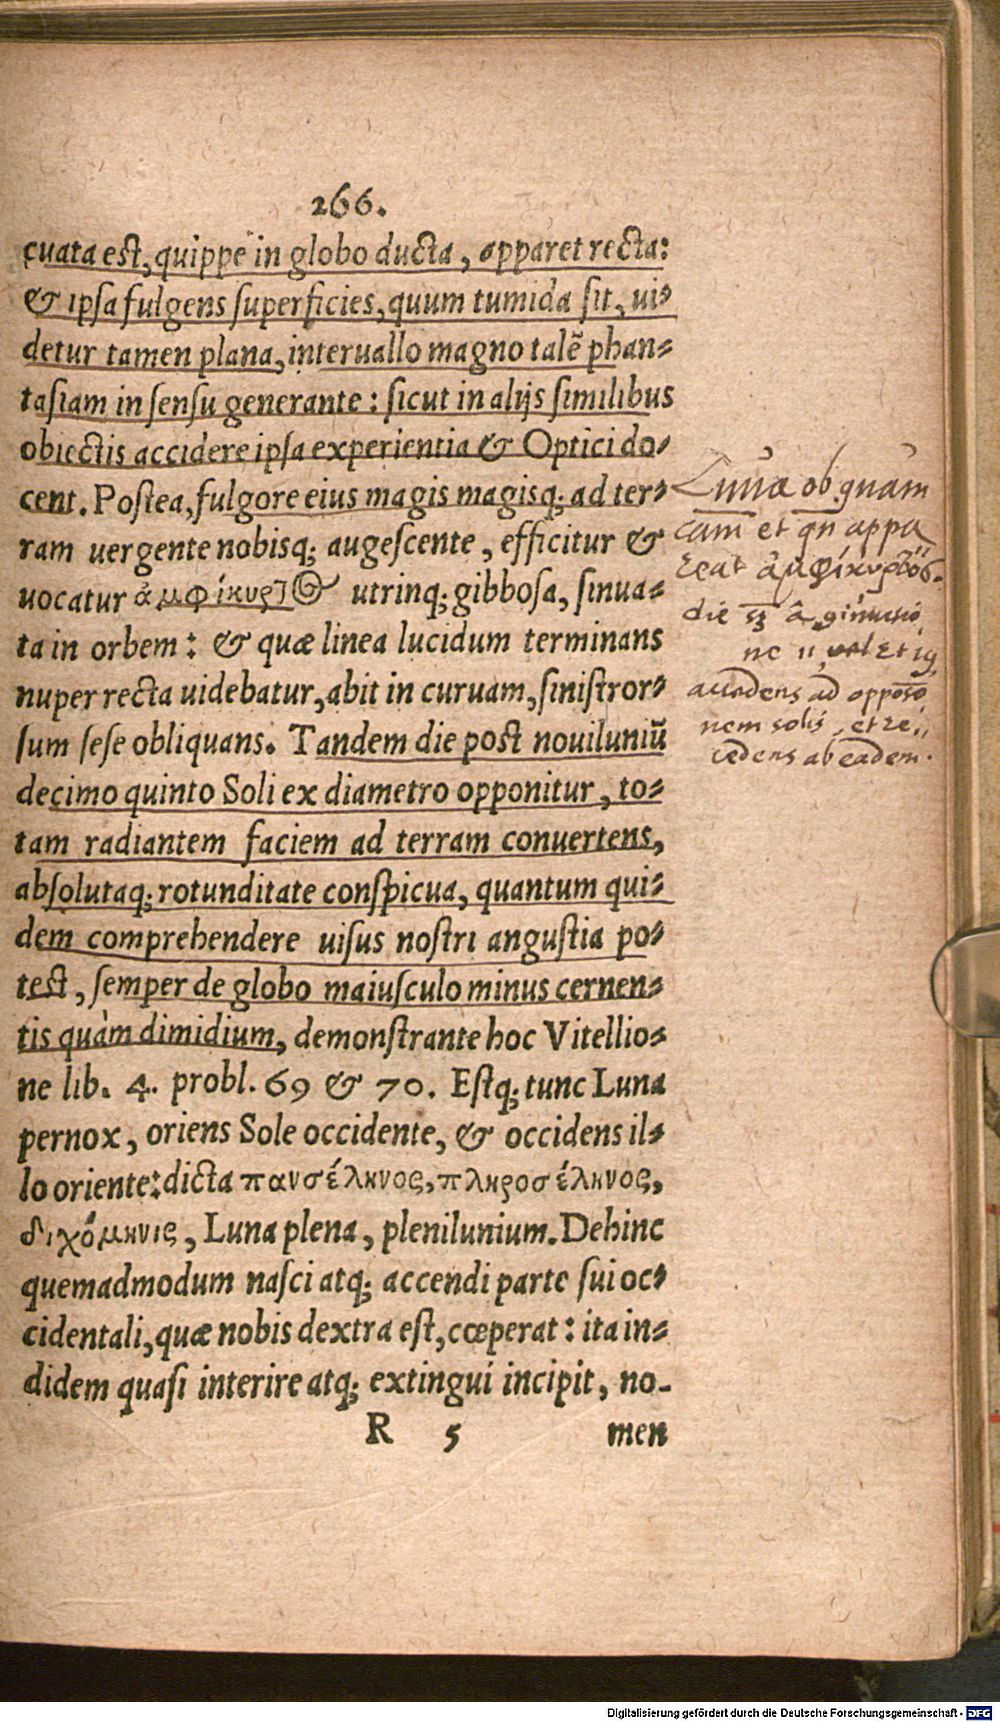 266.
cuata est, quippe in globo ducta, apparet recta:
& ipsa fulgens superficies, quum tumida sit, ui-
detur tamen plana, interuallo magno talē phan-
tasiam in sensu generante: sicut in alijs similibus
obiectis accidere ipsa experientia & Optici do-
cent. Postea, fulgore eius magis magisq; ad ter-
ram uergente nobisq; augescente, efficitur &
vocatur ἀμφίκυρτος utrinq; gibbosa, sinua-
ta in orbem: & quæ linea lucidum terminans
nuper recta uidebatur, abit in curuam, sinistror-
sum sese obliquans. Tandem die post nouiluniū
decimo quinto Soli ex diametro opponitur, to-
tam radiantem faciem ad terram conuertens,
absolutaq; rotunditate conspicua, quantum qui-
dem comprehendere uisus nostri angustia po-
test, semper de globo maiusculo minus cernen-
tis quàm dimidium, demonstrante hoc Vitellio-
ne lib. 4. probl. 69 & 70. Estq; tunc Luna
pernox, oriens Sole occidente, & occidens il-
lo oriente: dicta πανσέληνος, πληροσέληνος,
διχόμηνις, Luna plena, plenilunium. Dehinc
quemadmodum nasci atq; accendi parte sui oc-
cidentali, quæ nobis dextra est, cœperat: ita in-
didem quasi interire atq; extingui incipit, no-
R 5 men
Luna ob quam
cam et qn appa
reat ἀμφίκυρτος.
die
ne 11, uel
ad opposo
nem solis, et re,,
cedens ab eadem.
Digitalisierung gefördert durch die Deutsche Forschungsgemeinschaft - DFG